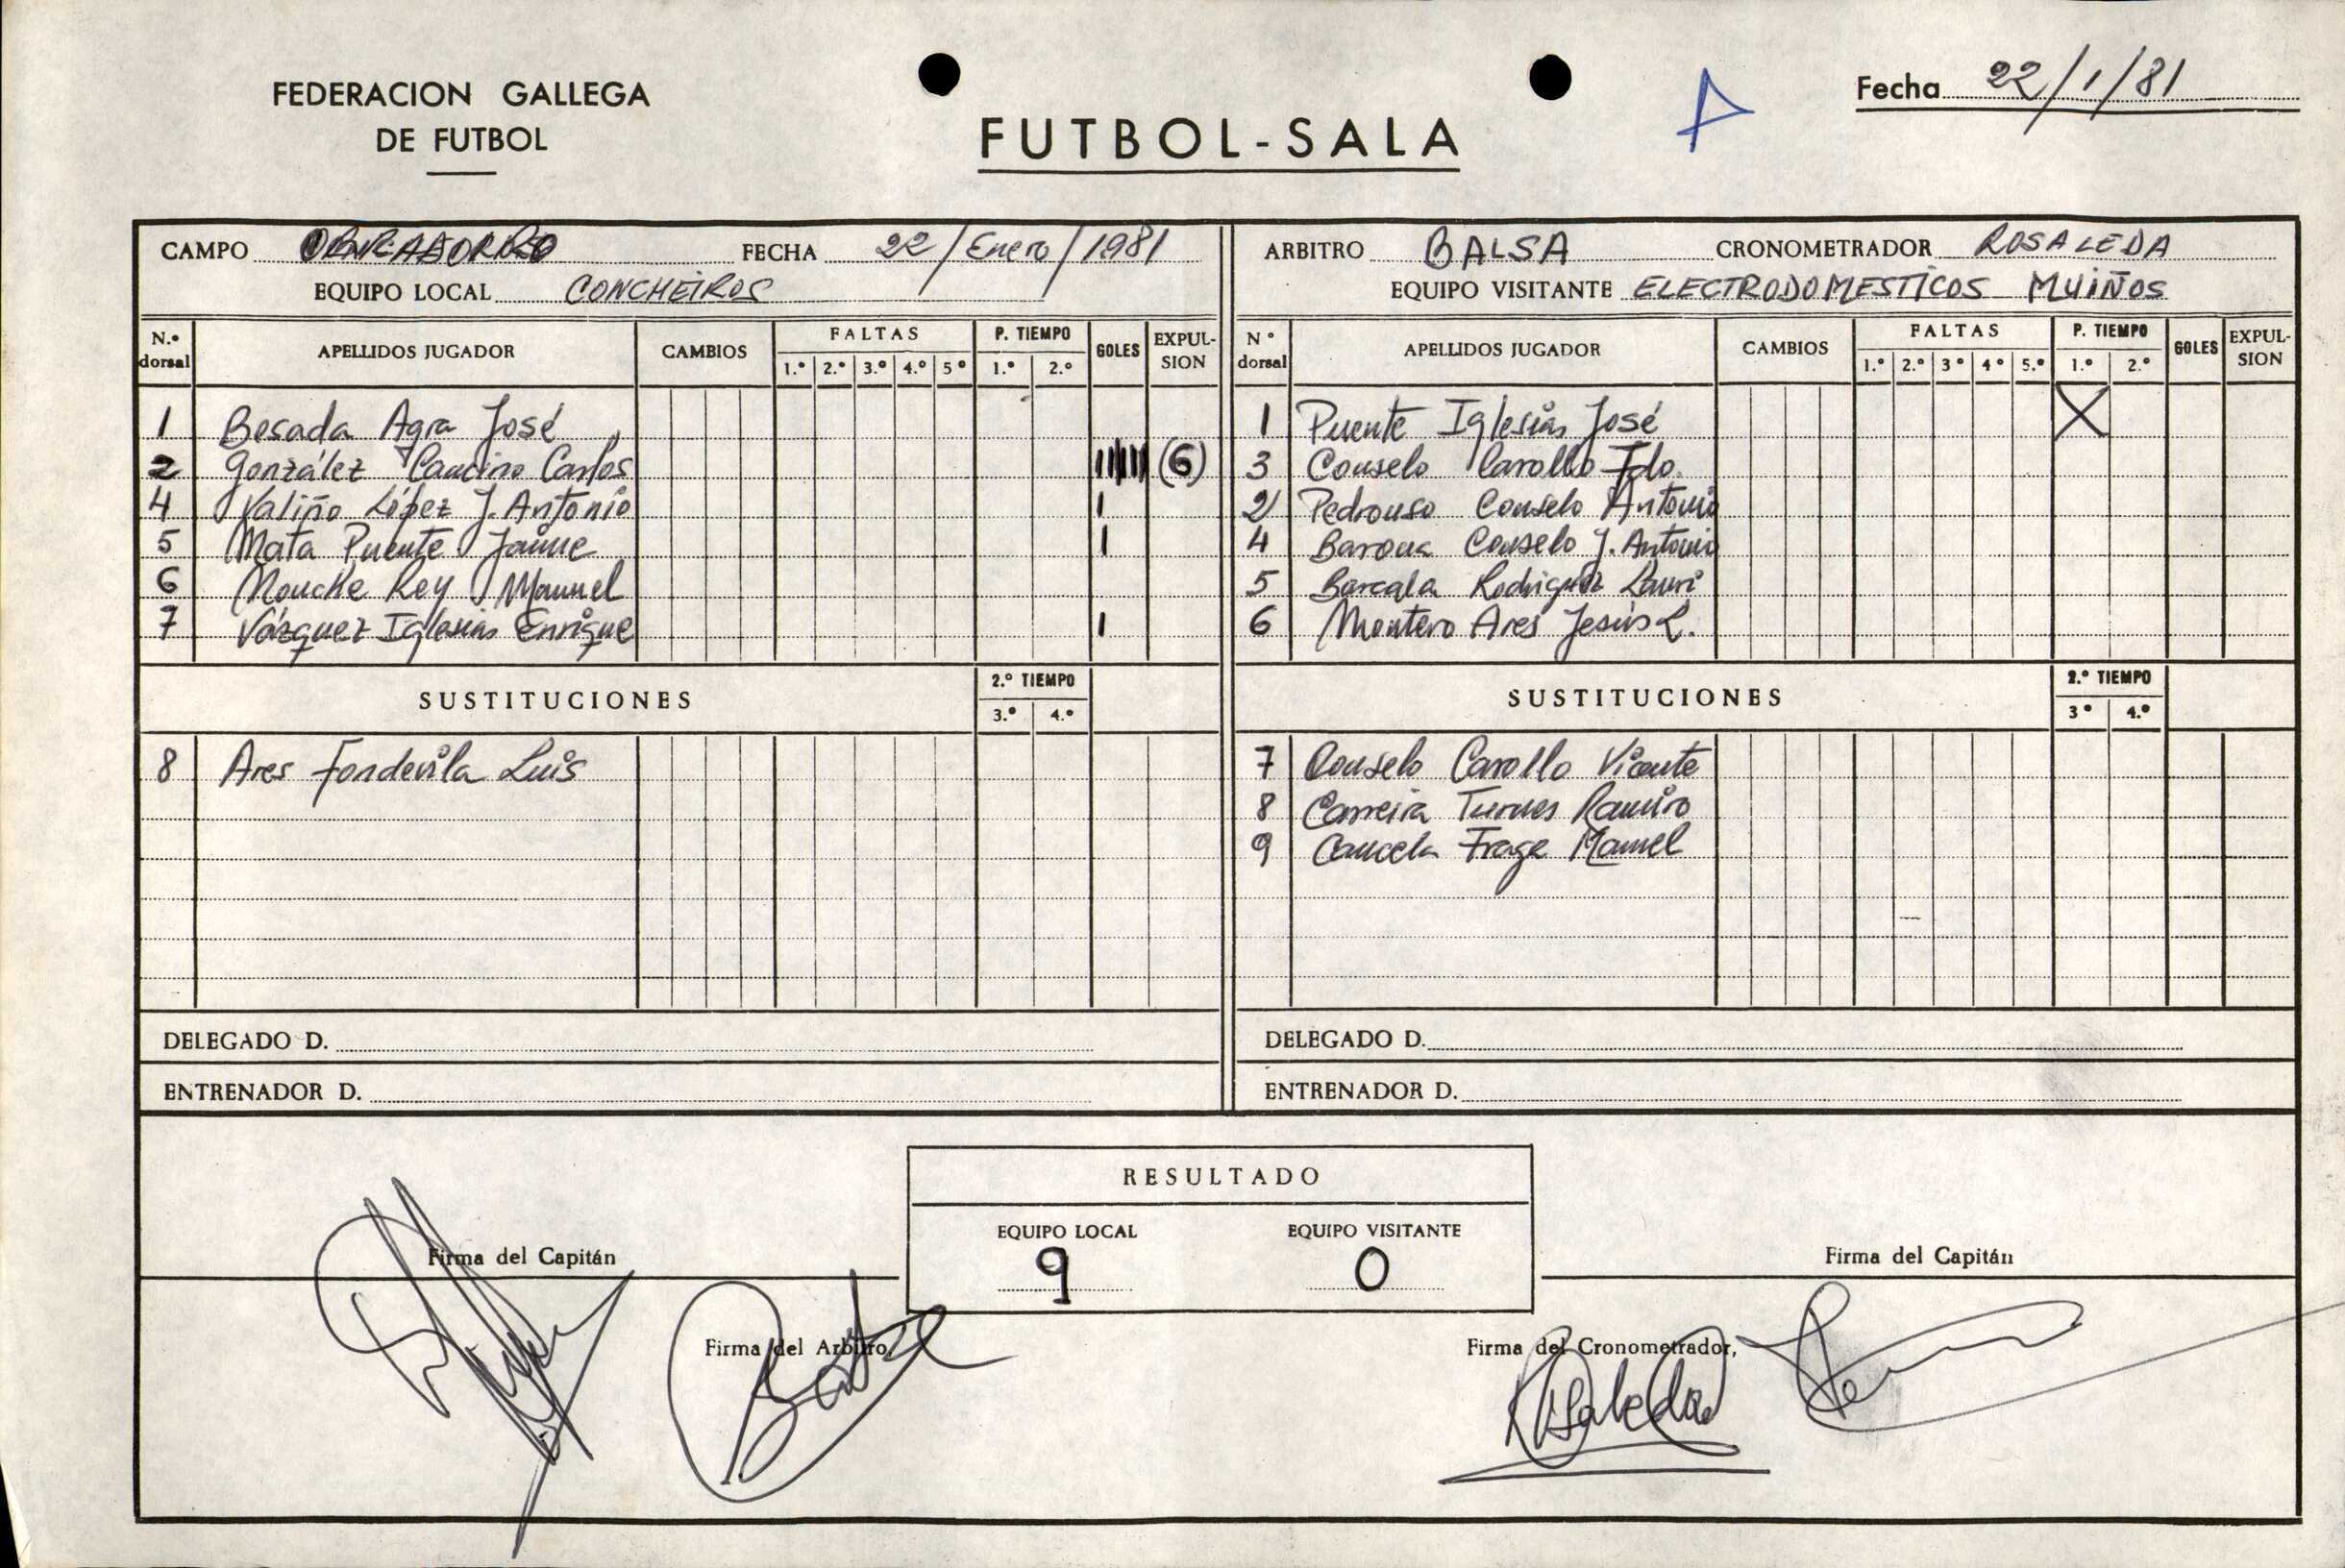 FEDERACION GALLEGA
DE FUTBOL
FUTBOL-SALA
A
Fecha 22/1/81
CAMPO FECHA 22/Enero/1981
EQUIPO LOCAL CONCHEIROS
N.º dorsal APELLIDOS JUGADOR CAMBIOS FALTAS 1.º 2.º 3.º 4.º 5º P. TIEMPO 1.º 2.º GOLES EXPULSION
1 Besada Agra José
2 González Cancino Carlos IIIIII (6)
4 Valiño López J. Antonio I
5 Mata Puente Jaime I
6 Mouche Rey Manuel
7 Vázquez Iglesias Enrique I
SUSTITUCIONES 2.º TIEMPO 3.º 4.º
8 Ares Fondevila Luis
DELEGADO D.
ENTRENADOR D.
ARBITRO BALSA CRONOMETRADOR ROSALEDA
EQUIPO VISITANTE ELECTRODOMESTICOS MUIÑOS
Nº dorsal APELLIDOS JUGADOR CAMBIOS FALTAS 1.º 2.º 3º 4º 5.º P. TIEMPO 1.º 2.º GOLES EXPULSION
1 Puente Iglesias José X
3 Conselo Carollo Fdo.
2 Pedrouso Conselo Antonio
4 Conselo J. Antonio
5 Barcala Rodriguez
6 Montero Ares Jesús L.
SUSTITUCIONES 2.º TIEMPO 3º 4.º
7 Conselo Carollo Vicente
8 Carreira Turnes Ramiro
9 Cancela Frage Manuel
DELEGADO D.
ENTRENADOR D.
RESULTADO
EQUIPO LOCAL EQUIPO VISITANTE
9 0
Firma del Capitán
Firma del Capitán
Firma del Arbitro,
Balsa
Firma del Cronometrador,
Rosaleda